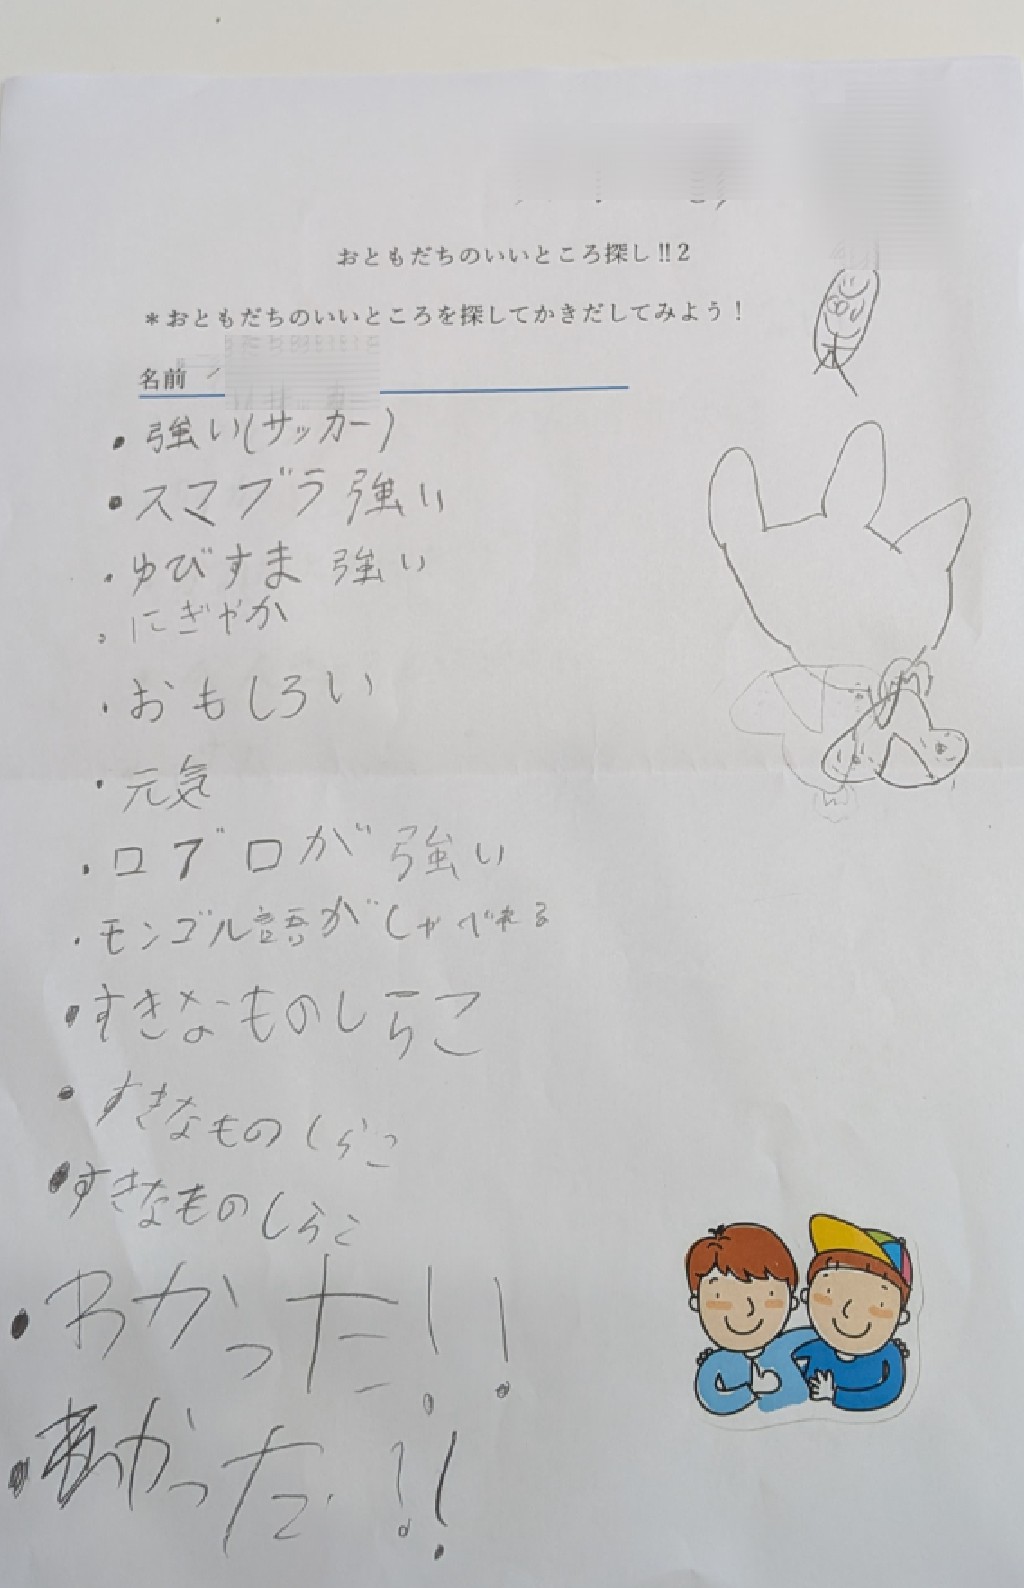 おともだちのいいところ探し!!2
*おともだちのいいところを探してかきだしてみよう!
名前
・強い(サッカー)
・スマブラ強い
・ゆびすま 強い
・にぎやか
・おもしろい
・元気
・ロブロが強い
・モンゴル語がしゃべれる
・すきなものしらこ
・すきなものしらこ
・すきなものしらこ
・わかった!!
かった!!